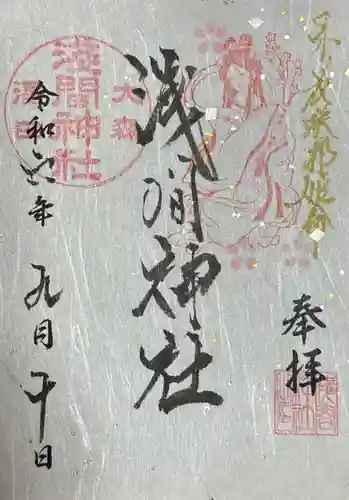 木ノ花咲耶姫命
奉拝
淺間神社
大森
淺間神社
令和六年
九月
十日